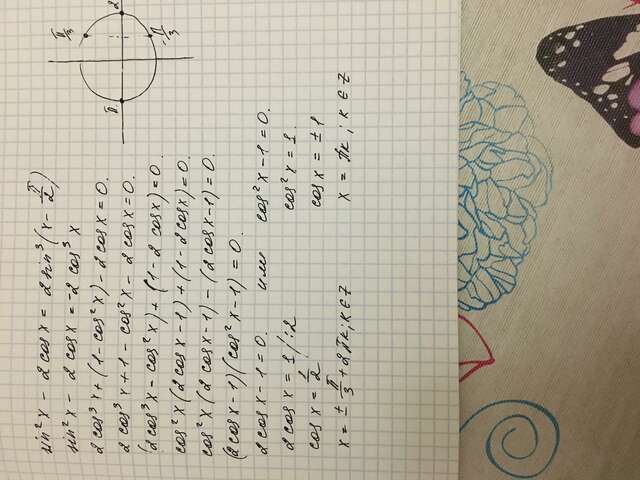 sin²x - 2cosx = 2sin³(x - π/2)
sin²x - 2cosx = -2cos³x
2cos³x + (1 - cos²x) - 2cosx = 0.
2cos³x + 1 - cos²x - 2cosx = 0.
(2cos³x - cos²x) + (1 - 2cosx) = 0.
cos²x(2cosx - 1) + (1 - 2cosx) = 0.
cos²x(2cosx - 1) - (2cosx - 1) = 0.
(2cosx - 1)(cos²x - 1) = 0.
2cosx - 1 = 0. или cos²x - 1 = 0.
2cosx = 1 /:2 cos²x = 1.
cosx = 1/2 cosx = ±1
x = ± π/3 + 2πk; k ∈ Z x = πk; k ∈ Z
π/3
π
-π/3